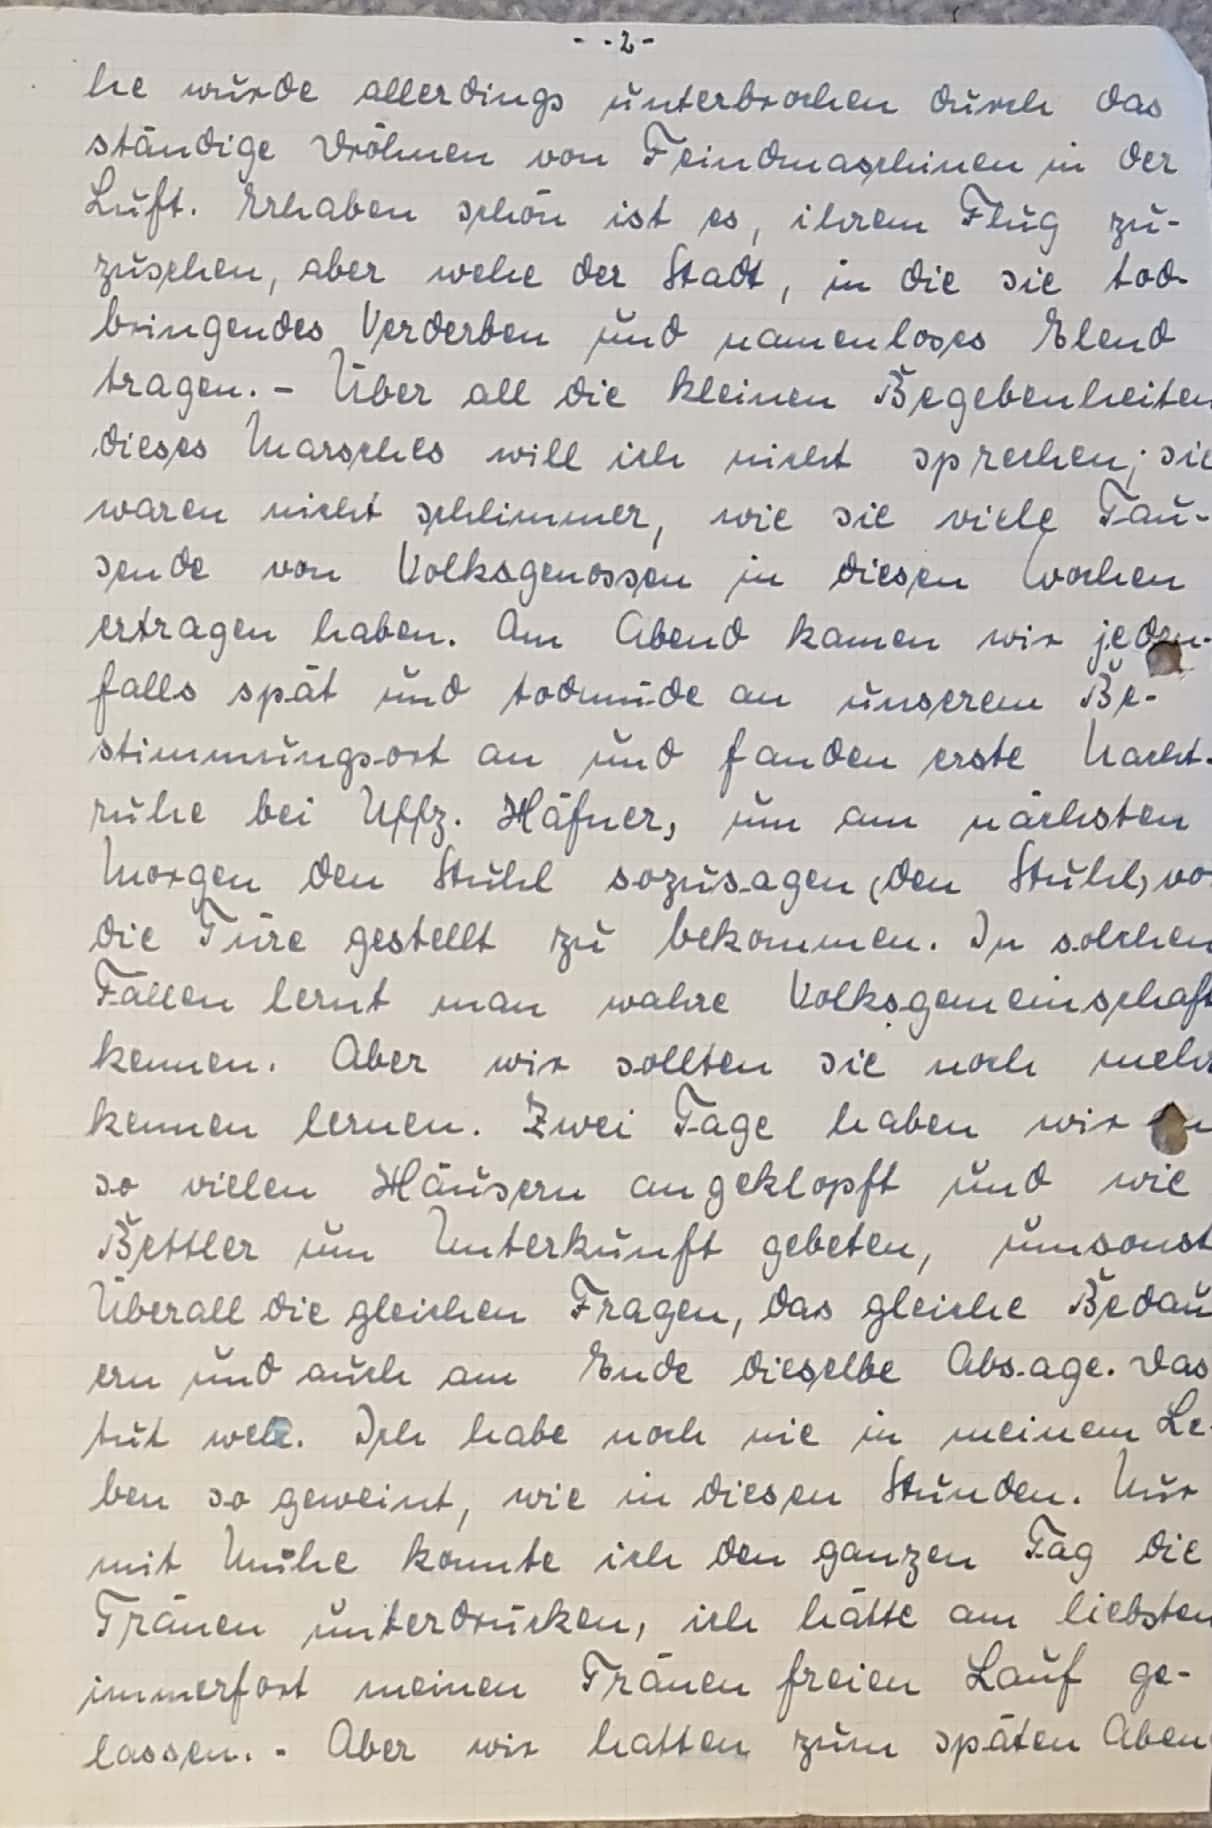 - . 2 -
he wurde allerdings unterbrochen durch das
ständige Dröhnen von Feindmaschinen in der
Luft. Erhaben schön ist es, ihrem Flug zu-
zusehen, aber wehe der Stadt, in die sie tod-
bringendes Verderben und namenloses Elend
tragen. - Über all die kleinen Begebenheiten
dieses Marsches will ich nicht sprechen; sie
waren nicht schlimmer, wie sie viele Tau-
sende von Volksgenossen in diesen Wochen
ertragen haben. Am Abend kamen wir jeden-
falls spät und todmüde an unserem Be-
stimmungsort an und fanden erste Nacht-
ruhe bei Uffz. Häfner, um am nächsten
Morgen den Stuhl sozusagen (den Stuhl) vo
die Türe gestellt zu bekommen. In solchen
Fällen lernt man wahre Volksgemeinschaft
kennen. Aber wir sollten sie noch mehr
kennen lernen. Zwei Tage haben wir
so vielen Häusern angeklopft und wie
Bettler um Unterkunft gebeten, umsonst
Überall die gleichen Fragen, das gleiche Bedau
ern und auch am Ende dieselbe Absage. Das
tut weh. Ich habe noch nie in meinem Le-
ben so geweint, wie in diesen Stunden. Nur
mit Mühe konnte ich den ganzen Tag die
Tränen unterdrücken, ich hätte am liebsten
immerfort meinen Tränen freien Lauf ge-
lassen. - Aber wir hatten zum späten Aben